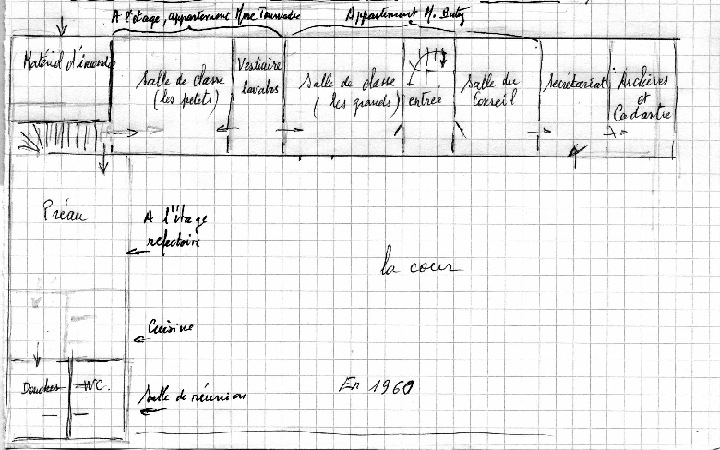 A l'étage, appartement Mme
Appartement M.
Matériel d'incendie
Salle de classe
(les petits)
Vestiaire
lavabos
Salle de classe
(les grands)
entrée
Salle du
Conseil
Secrétariat
Archives
et
Cadastre
Préau
A l'étage
refectoire
la cour
Cuisine
Douches
WC.
Salle de réunion
En 1960